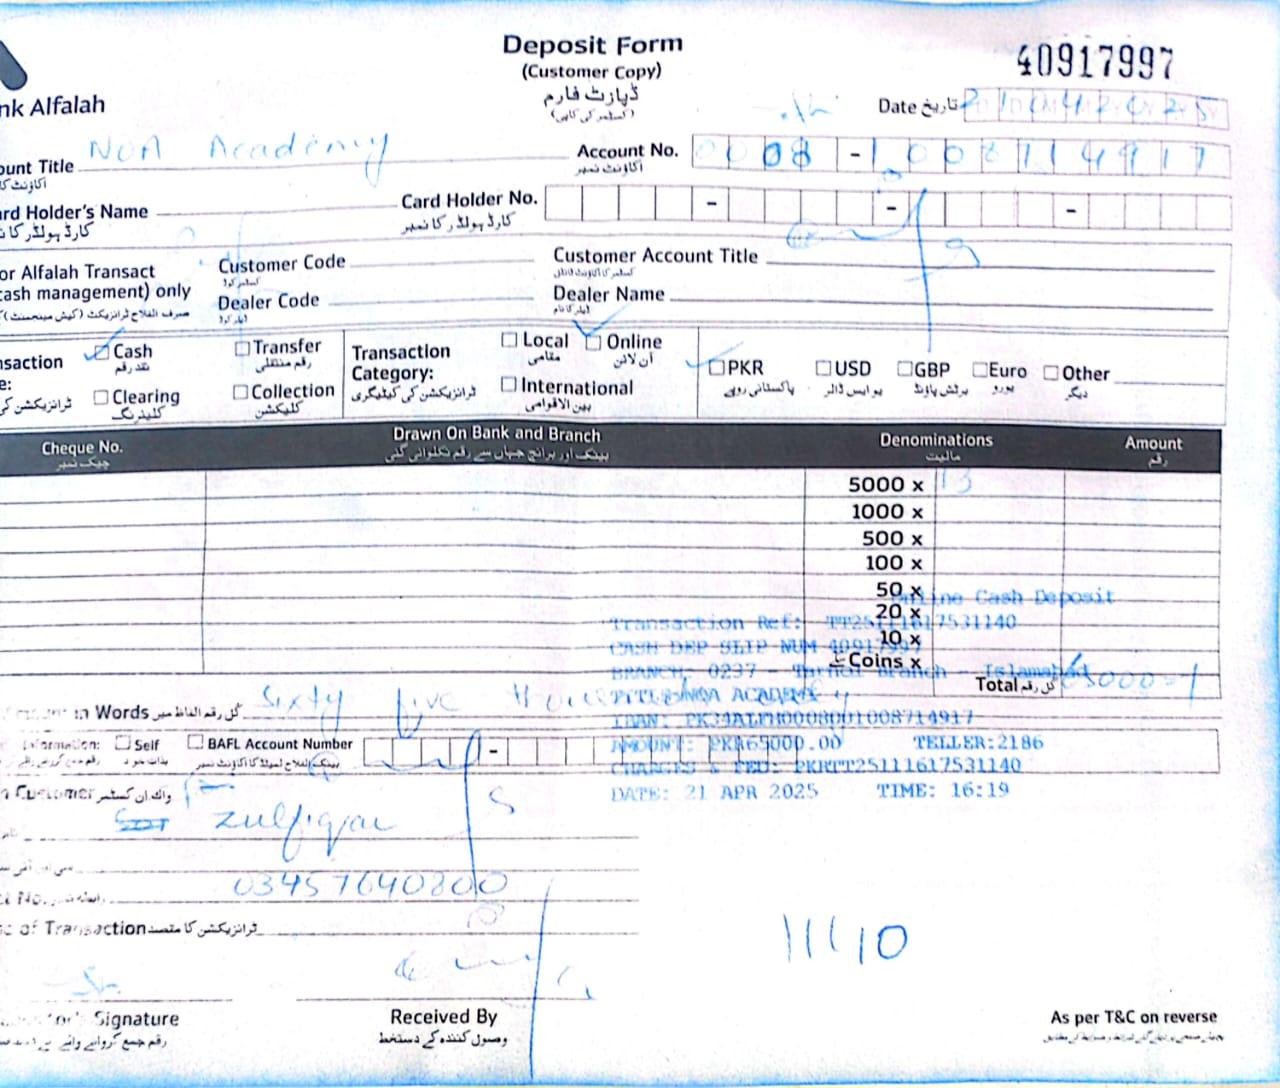 Deposit Form
(Customer Copy)
ڈپازٹ فارم
(کسٹمر کی کاپی)
40917997
nk Alfalah
Date تاریخ 21042025
ount Title NOA Academy
Account No. 0008-1008714917
اکاؤنٹ نمبر
rd Holder's Name
Card Holder No.
کارڈ ہولڈر کا نمبر
or Alfalah Transact
cash management) only
Customer Code
Customer Account Title
Dealer Code
Dealer Name
nsaction
Cash
نقد رقم
Transfer
رقم منتقلی
Clearing
کلیئرنگ
Collection
کلیکشن
Transaction
Category:
ٹرانزیکشن کی کیٹیگری
Local
مقامی
Online
آن لائن
International
بین الاقوامی
PKR
پاکستانی روپے
USD
یو ایس ڈالر
GBP
برٹش پاؤنڈ
Euro
یورو
Other
دیگر
Cheque No.
چیک نمبر
Drawn On Bank and Branch
بینک اور برانچ جہاں سے رقم نکلوائی گئی
Denominations
مالیت
Amount
رقم
5000 x 13
1000 x
500 x
100 x
50 x
20 x
10 x
Coins x
Total کل رقم 65000=/
Online Cash Deposit
Transaction Ref: TT25111617531140
CASH DEP SLIP NUM 40917997
BRANCH: 0237 - Tarnol Branch - Islamabad
TITLE: NOA ACADEMY
IBAN: PK34ALFH0008001008714917
AMOUNT: PKR65000.00 TELLER:2186
CHARGES & FED: PKRTT25111617531140
DATE: 21 APR 2025 TIME: 16:19
in Words کل رقم الفاظ میں Sixty five thousand
Information: Self
بذات خود
BAFL Account Number
Customer واک ان کسٹمر
Zulfiqar
03457640800
of Transaction ٹرانزیکشن کا مقصد
111,10
Signature
Received By
وصول کنندہ کے دستخط
As per T&C on reverse